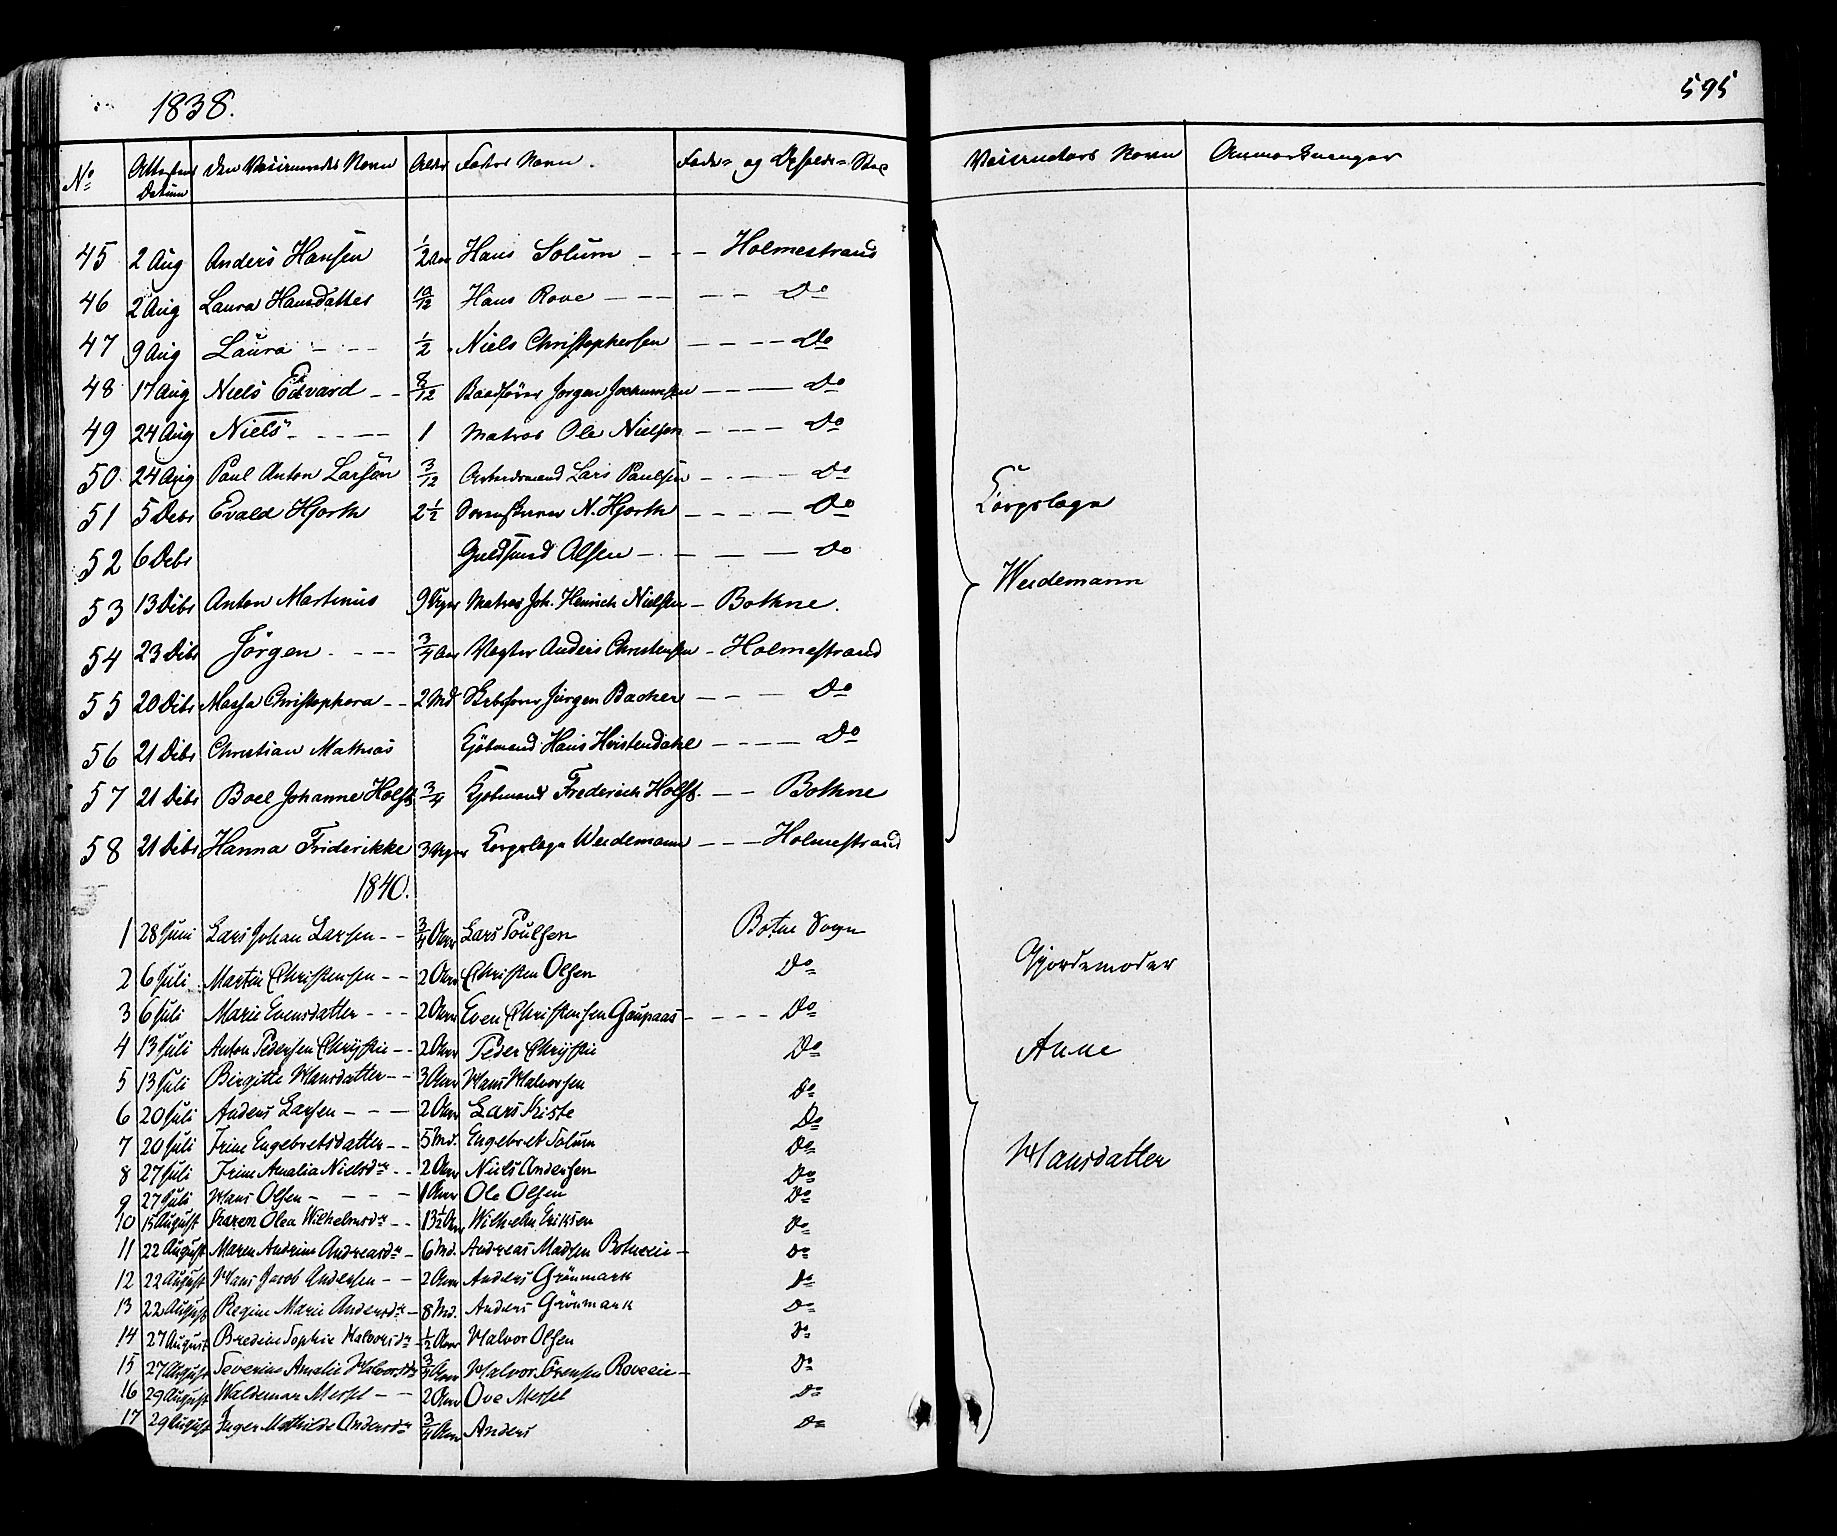 1838.
595
No Attestens Datum Den Vaccineredes Navn Alder Faders Navn. Føde- og Opholds-Sted Vaccinators Navn Anmærkninger
45 2 Aug Anders Hansen 1/2 Aar Hans Solum - - - Holmestrand
46 2 Aug Laura Hansdatter 10/12 Hans Rove - - - - - Do
47 9 Aug Laura - - - 1/2 Niels Christophersen - - - - Do
48 17 Aug Niels Edvard - - 8/12 Baadfører Jørgen Jochumsen - - - Do
49 24 Aug Niels - - - - 1 Matros Ole Nielsen - - - Do
50 24 Aug Paul Anton Larsen 3/12 Arbeidsmand Lars Paulsen - - - Do
51 5 Debr Evald Hjorth 2 1/2 N. Hjorth - - - - Do
52 6 Debr Guldsmed Olsen - - - - Do
53 13 Debr Anton Martinus 9 Uger Matros Joh. Henrich Nielsen - Bothne.
54 23 Debr Jörgen - - - 3/4 Aar Vægter Anders Christensen - Holmestrand
55 20 Debr Massa Christophara - - 2 Md Skibsfører Jürgen Backer - - - Do
56 21 Debr Christian Mathias Kjöbmand Hans Hvistendahl - - - - Do
57 21 Debr Boel Johanne Holst 3/4 Kjöbmand Frederich Holst. - - Bothne
58 21 Debr Hanna Friderikke 3 Uger Corpslæge Weidemann - - - Holmestrand
Corpslæge
Weidemann
1840.
1 28 Juni Lars Johan Larsen - - 3/4 Aar Lars Poulsen Botne Sogn
2 6 Juli Martin Christensen - - 2 Aar Christen Olsen Do
3 6 Juli Marie Evensdatter - - - 2 Aar Even Christensen Gaupaas - - - - Do
4 13 Juli Anton Pedersen Chrystie - - 2 Aar Peder Chrystie Do
5 13 Juli Birgitte Hansdatter - - 3 Aar Hans Halvorsen Do
6 20 Juli Anders Larsen - - - 2 Aar Lars Kiste Do
7 20 Juli Trine Engebretsdatter - - 5 Md. Engebret Solum Do
8 27 Juli Trine Amalia Nielsdr - - 2 Aar Niels Andersen Do
9 27 Juli Hans Olsen - - - - 1 Aar Ole Olsen Do
10 15 August Karen Olea Wilhelmsdr - - 13 1/2 Aar Wilhelm Eriksen Do
11 22 August Maren Andrine Andreasdr - 6 Md. Andreas Madsen Botneeie - Do
12 22 August Hans Jacob Andersen - - 2 Aar Anders Grönmark Do
13 22 August Regine Marie Andersdr - 8 Md. Anders Grönmark Do
14 27 August Bredine Sophie Halvorsdr - 1/2 Aar Halvor Olsen Do
15 27 August Severine Amalie Halvorsdr 3/4 Aar Halvor Sörensen Roveeie - Do
16 29 August Waldemar Mersel - - 2 Aar Ove Mersel Do
17 29 August Inger Mathilde Andersdr 3/4 Aar Anders Do
Gjordemoder
Anne
Hansdatter